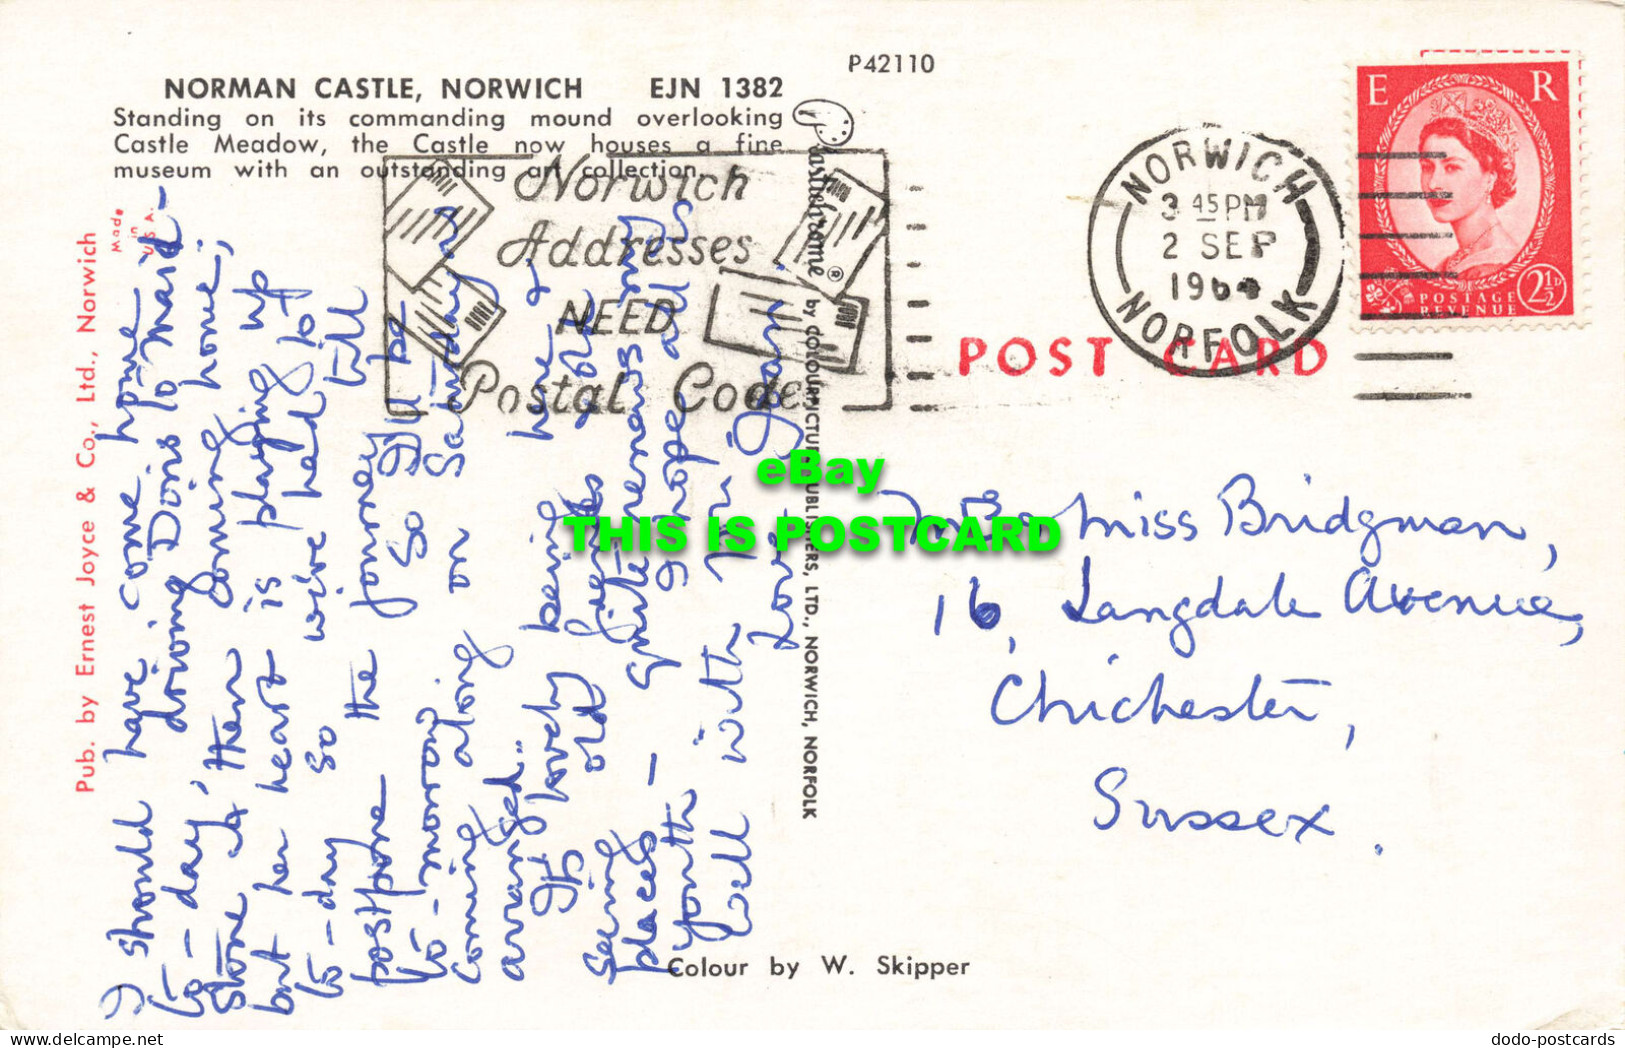 P42110
NORMAN CASTLE, NORWICH EJN 1382
Standing on its commanding mound overlooking
Castle Meadow, the Castle now houses a fine
museum with an outstanding art collection.
Norwich
Addresses
NEED
Postal Code
NORWICH
3 45 PM
2 SEP
1964
NORFOLK
E R
POSTAGE
REVENUE
2½D
POST CARD
Pub. by Ernest Joyce & Co., Ltd., Norwich
Made
in
U.S.A.
Plastichrome ® by COLOURPICTURE PUBLISHERS, LTD., NORWICH, NORFOLK
I should have come home
to-day, driving Doris to Maid-
stone & then coming home,
but her heart is playing up
to-day so we've had to
postpone the journey till
to-morrow. So I'll be
coming along on Saturday as
arranged.
It's lovely being here &
seeing old friends & old
places – quite renews my
youth – I hope all is
well with you
Love
Joan
Miss Bridgman,
16, Langdale Avenue,
Chichester,
Sussex.
Colour by W. Skipper
eBay
THIS IS POSTCARD
dodo-postcards